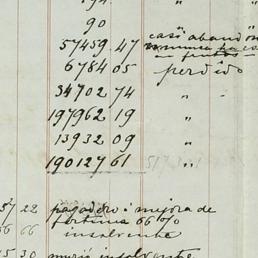 90 "
57459 47 casi abandon
6784 05 perdido
34702 74 "
197962 19 "
13932 09 "
190127 61
57 22 pagadero i mejora de
66 66 fortuna 66 %
insolvente
15 30 murió insolvente